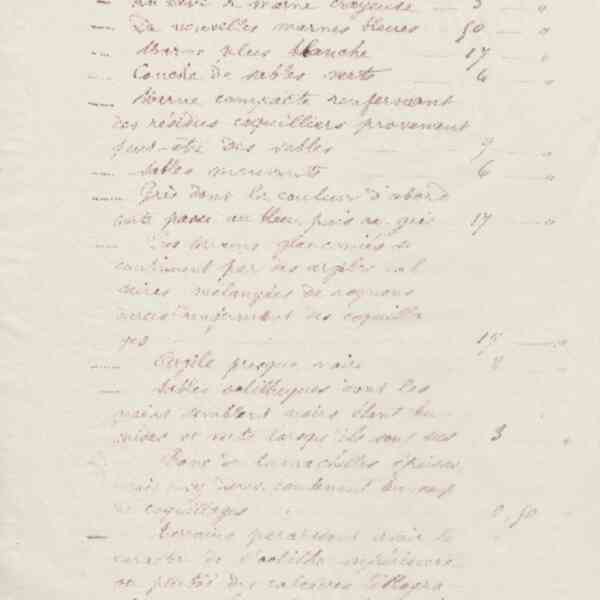 — de marne crayeuse — 3 — "
— De nouvelles marnes bleues 50 — "
— Marne plus blanche — 17 — "
— Couche de sables verts — 6 — "
— Marne compacte renfermant
des résidus coquilliers provenant
peut-être des sables — 9 — "
— Sables mouvants — 6 — "
— Grès dont la couleur d'abord
verte passe au bleu puis au gris 17 — "
— Des terrains glauconiés se
continuent par des argiles cal
caires mélangées de rognons
renfermant des coquilla
ges — 15 — "
— Argile presque noire 2 "
— Sables oolithiques dont les
grains semblent noirs étant hu-
mides et verts lorsqu'ils sont secs 3 "
Banc de lumachelles épaisses
mais contenant beaucoup
de coquillages 0 50 "
— terrains paraissent avoir le
caractère de l'oolithe inférieure
des calcaires